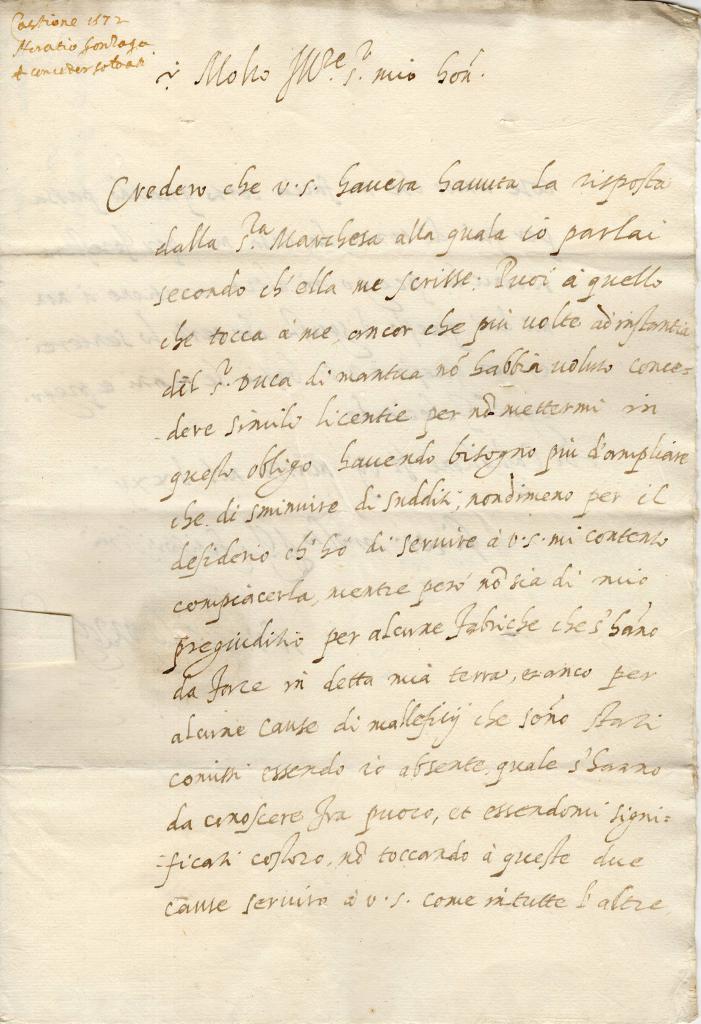 Castione 1572
Horatio Gonzaga
Molto Ill.re s.r mio hon.
Credero che v.s. havera havuta la risposta
dalla s.ra Marchesa alla quala io parlai
secondo ch'ella me scrisse. Puoi à quello
che tocca à me, ancor che più volte ad instantia
del s.r Duca di mantua nō habbia voluto conce-
dere simile licentie per nō mettermi in
questo obligo havendo bisogno più d'ampliare
che di sminuire di sudditi; nondimeno per il
desiderio ch'hò di servire à v.s. mi contento
compiacerla, mentre però nō sia di mio
pregiuditio per alcune fabriche che s'hāno
da farce in detta mia terra, et anco per
alcune cause di malleficij che sono stati
comissi essendo io absente, quale s'hanno
da conoscere fra puoco, et essendomi signi-
ficati costoro, nō toccando à queste due
cause serviro à v.s. come in tutte l'altre